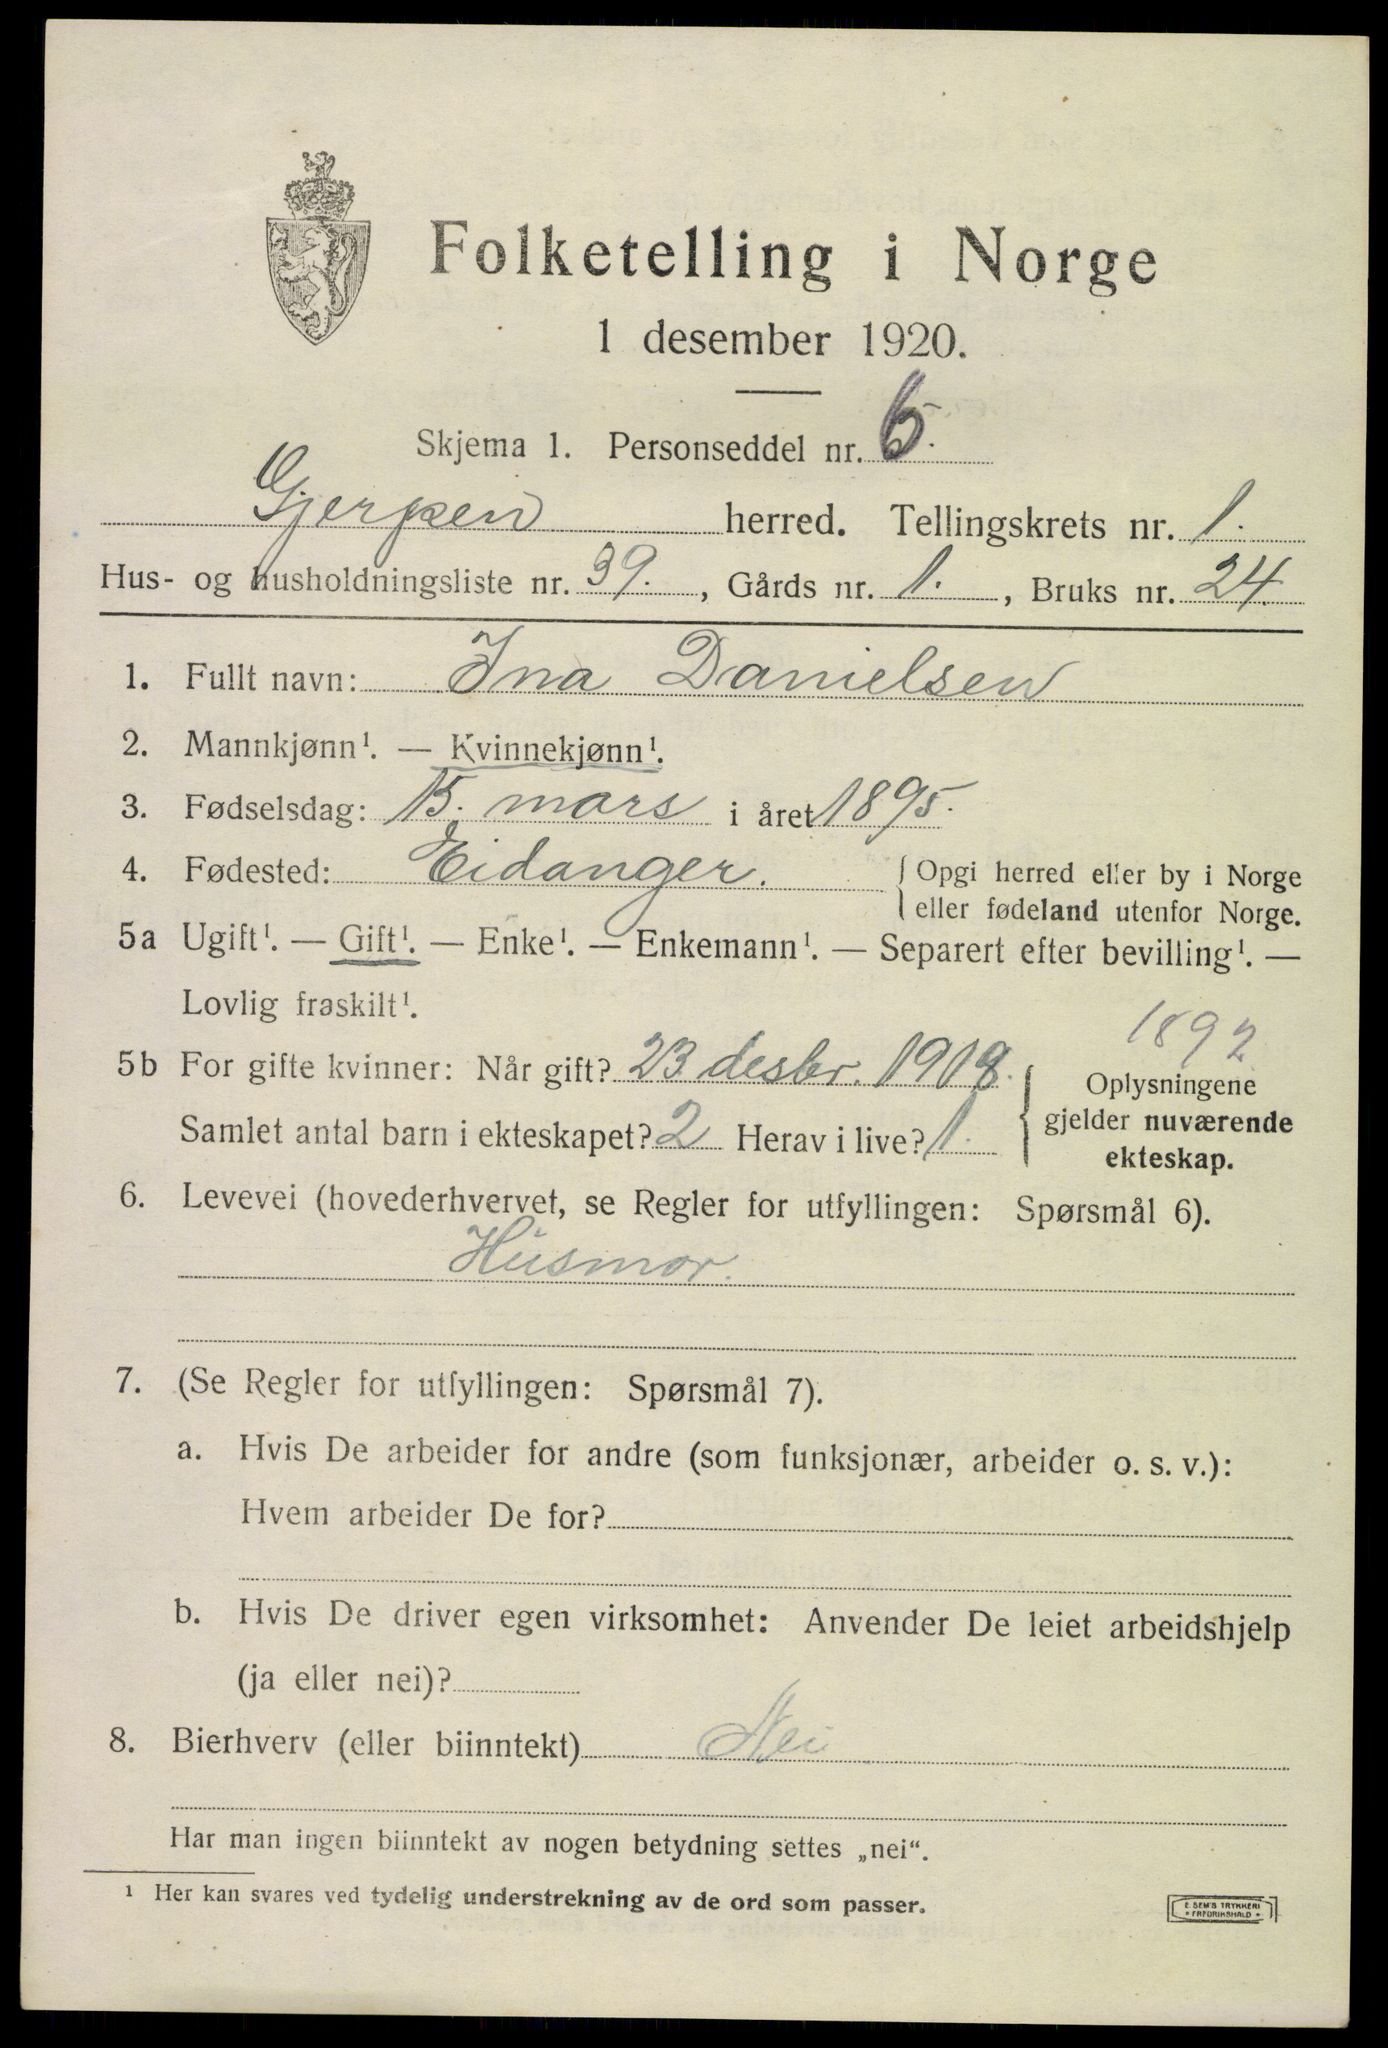 Folketelling i Norge
1 desember 1920.
Skjema 1. Personseddel nr. 6.
Gjerpen herred. Tellingskrets nr. 1.
Hus- og husholdningsliste nr. 39. , Gårds nr. 1. , Bruks nr. 24.
1. Fullt navn: Ina Danielsen
2. Mannkjønn¹. — Kvinnekjønn¹.
3. Fødselsdag: 15. mars i året 1895.
4. Fødested: Eidanger. Opgi herred eller by i Norge
eller fødeland utenfor Norge.
5a Ugift¹. — Gift¹. — Enke¹. — Enkemann¹. — Separert efter bevilling¹. —
Lovlig fraskilt¹.
1892
5b For gifte kvinner: Når gift? 23 desbr. 1918. Oplysningene
Samlet antal barn i ekteskapet? 2 Herav i live? 1. gjelder nuværende
ekteskap.
6. Levevei (hovederhvervet, se Regler for utfyllingen: Spørsmål 6).
Husmor.
7. (Se Regler for utfyllingen: Spørsmål 7).
a. Hvis De arbeider for andre (som funksjonær, arbeider o. s. v.):
Hvem arbeider De for?
b. Hvis De driver egen virksomhet: Anvender De leiet arbeidshjelp
(ja eller nei)?
8. Bierhverv (eller biinntekt) Nei
Har man ingen biinntekt av nogen betydning settes „nei“.
¹ Her kan svares ved tydelig understrekning av de ord som passer.
E. SEM'S TRYKKERI
FREDRIKSHALD